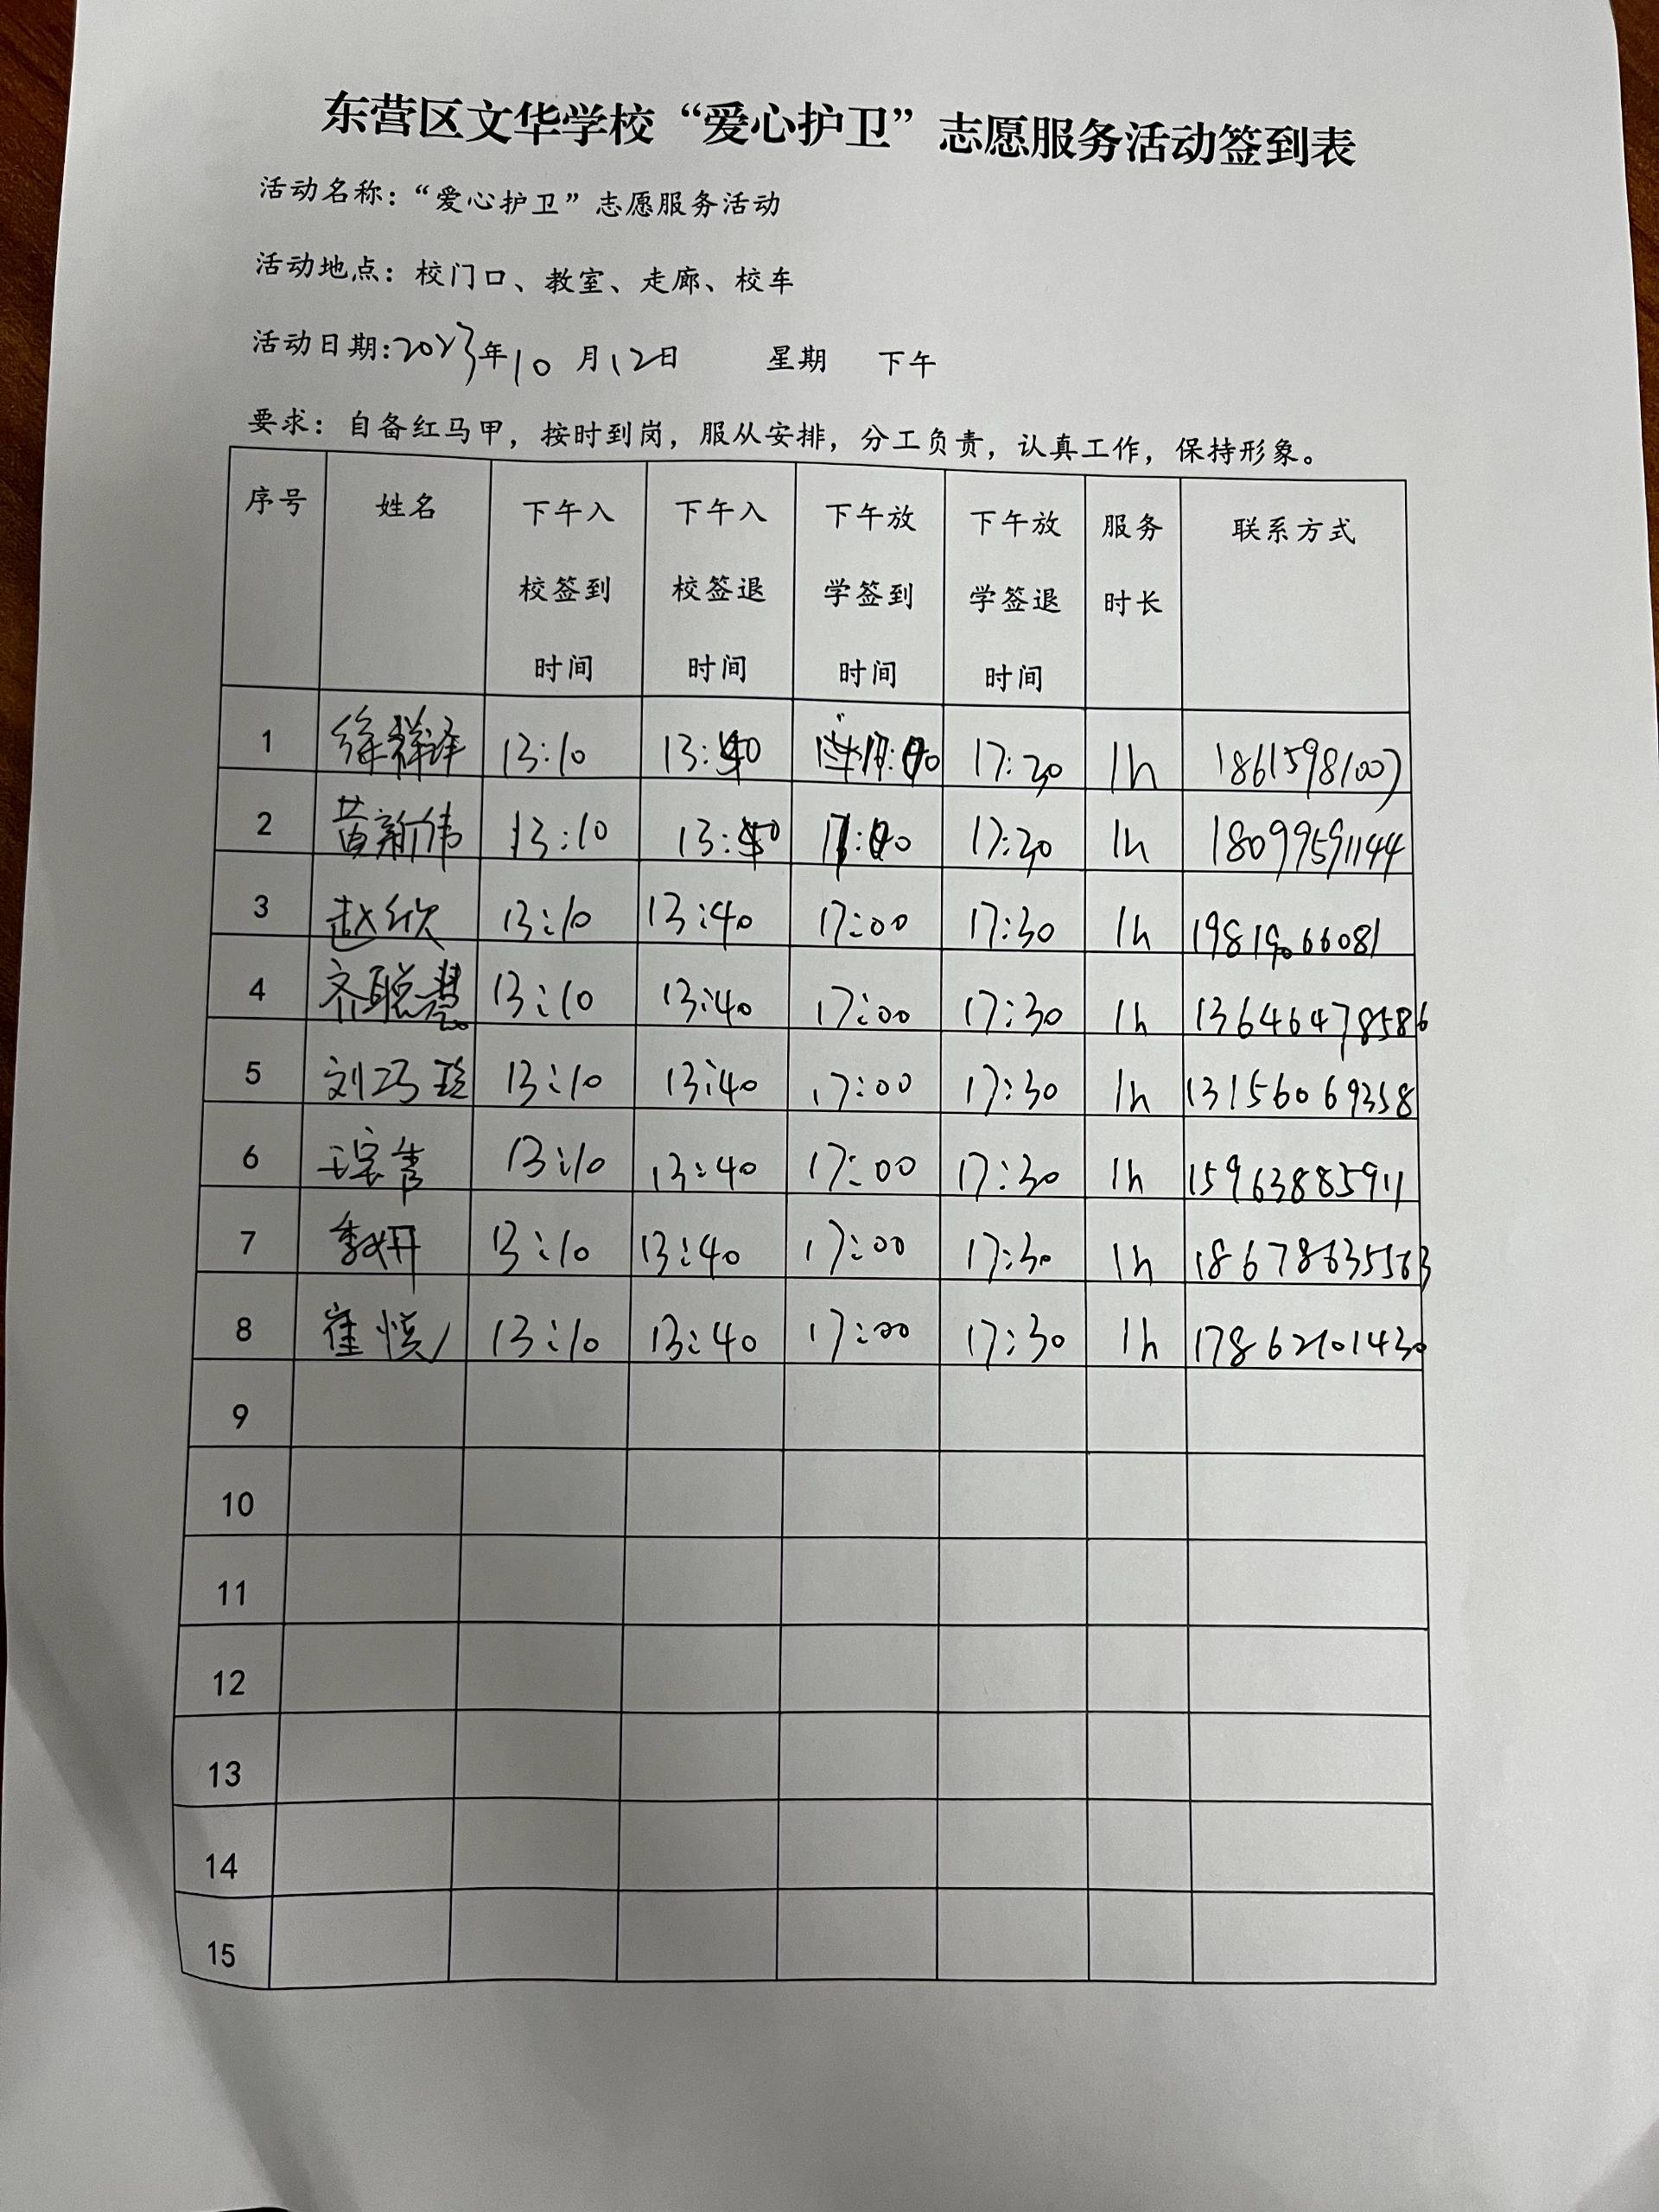 东营区文华学校“爱心护卫”志愿服务活动签到表
活动名称：“爱心护卫”志愿服务活动
活动地点：校门口、教室、走廊、校车
活动日期:2023年10月12日 星期 下午
要求：自备红马甲，按时到岗，服从安排，分工负责，认真工作，保持形象。
序号 姓名 下午入校签到时间 下午入校签退时间 下午放学签到时间 下午放学签退时间 服务时长 联系方式
1 徐祥译 13:10 13:40 17:00 17:30 1h 18615981007
2 黄新伟 13:10 13:40 17:00 17:30 1h 18099591144
3 赵欣 13:10 13:40 17:00 17:30 1h 19819066081
4 齐聪慧 13:10 13:40 17:00 17:30 1h 13646478586
5 刘巧 13:10 13:40 17:00 17:30 1h 13156069358
6 13:10 13:40 17:00 17:30 1h 15963885911
7 李妍 13:10 13:40 17:00 17:30 1h 18678635563
8 崔悦 13:10 13:40 17:00 17:30 1h 17862101430
9
10
11
12
13
14
15